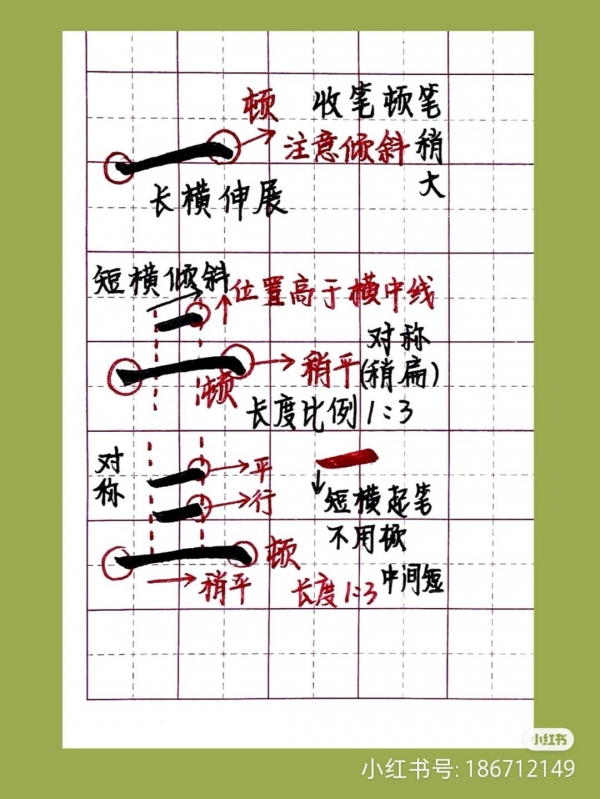 顿 收笔顿笔
注意倾斜 稍
大
长横伸展
短横倾斜
位置高于横中线
对称
稍平(稍扁)
顿
长度比例1:3
对
称
平
行
短横起笔
不用顿
顿
稍平 长度1:3 中间短
小红书
小红书号: 186712149